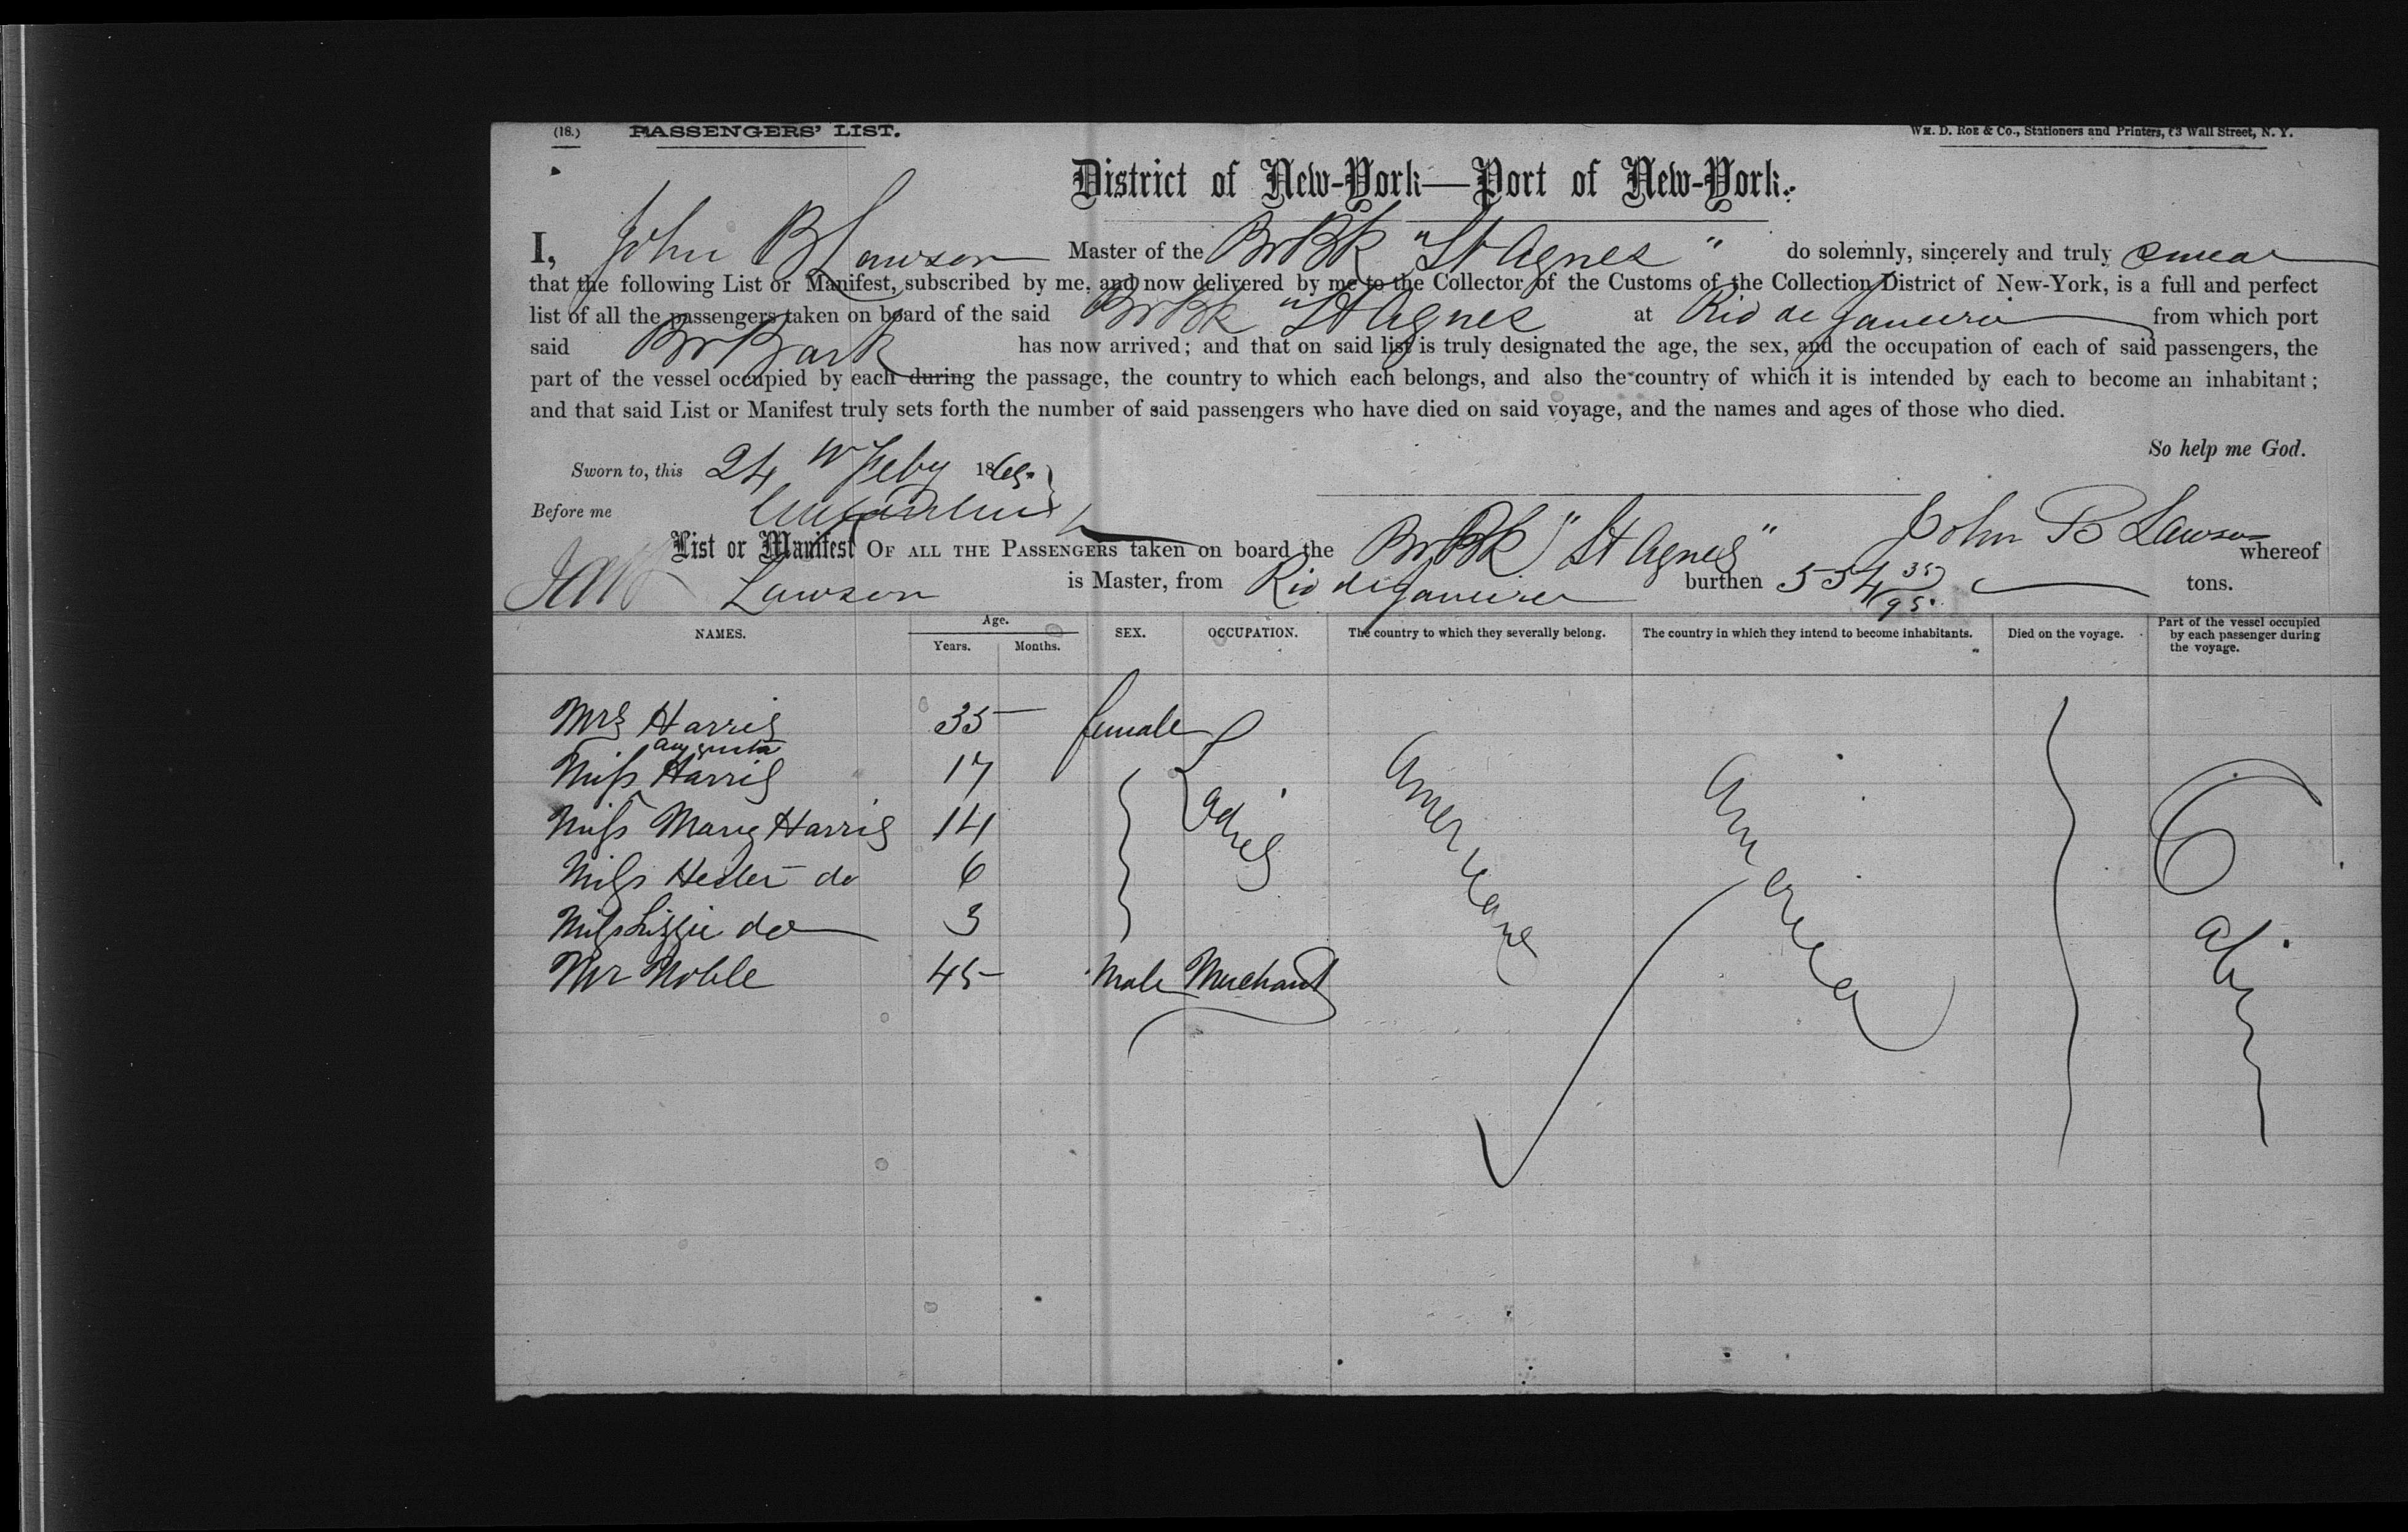 (18.) PASSENGERS' LIST. WM. D. ROE & CO., Stationers and Printers, 63 Wall Street, N. Y.
District of New-York—Port of New-York.
I, John B Lawson Master of the Br Bk "St Agnes" do solemnly, sincerely and truly swear
that the following List or Manifest, subscribed by me, and now delivered by me to the Collector of the Customs of the Collection District of New-York, is a full and perfect
list of all the passengers taken on board of the said Br Bk "St Agnes at Rio de Janeiro from which port
said Br Bark has now arrived; and that on said list is truly designated the age, the sex, and the occupation of each of said passengers, the
part of the vessel occupied by each during the passage, the country to which each belongs, and also the country of which it is intended by each to become an inhabitant;
and that said List or Manifest truly sets forth the number of said passengers who have died on said voyage, and the names and ages of those who died.
So help me God.
Sworn to, this 24 Feby 186
Before me
John B Lawson
List or Manifest OF ALL THE PASSENGERS taken on board the Br Bk "St Agnes" whereof
Lawson is Master, from Rio de Janeiro burthen 554 35/95 tons.
NAMES. Age. Years. Months. SEX. OCCUPATION. The country to which they severally belong. The country in which they intend to become inhabitants. Died on the voyage. Part of the vessel occupied by each passenger during the voyage.
Mrs Harris 35 female
Augusta
Miss Harris 17 Ladies American America Cabin
Miss Mary Harris 14
Miss Hester do 6
Miss Lizzie do 3
Mr Noble 45 Male Merchant